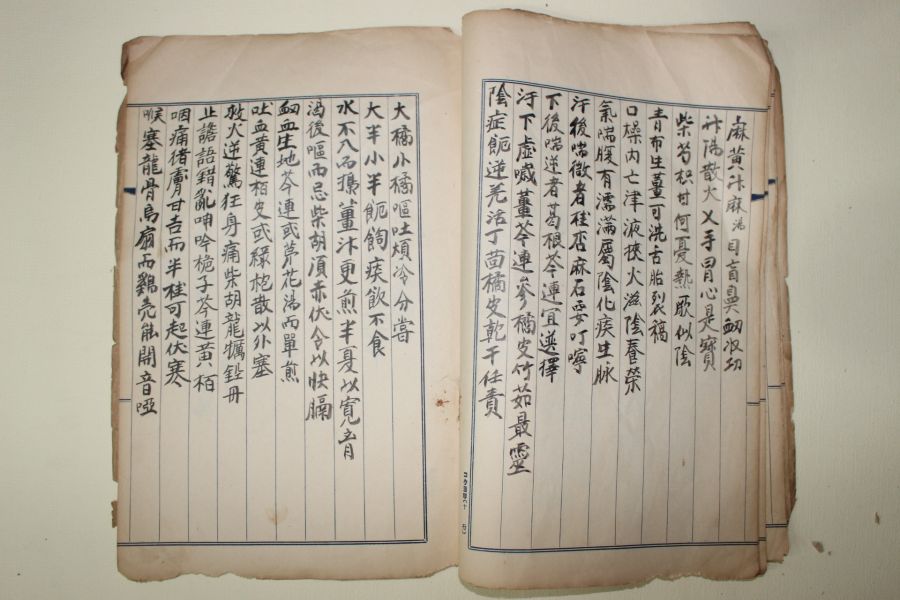 麻黄汁麻湯目盲鼻衂收功
汁湯散火乂手冒心是寶
柴芍枳甘何憂熱厥似陰
青布生薑可洗舌胎裂稿
口橾内亡津液挾火滋陰養榮
氣喘腹有濡滿屬陰化痰生脉
汗後喘微者桂杏麻石要叮嚀
下後喘逆者葛根芩連宜選擇
汗下虚噦薑芩連參橘皮竹茹最靈
陰症呃逆羌活丁茴橘皮乾干任責
大橘小橘嘔吐煩冷分嘗
大半小半呃飼痰飲不食
水不入而搗薑汁更煎半夏以寬音
渴後嘔而忌柴胡湏赤伏令以快膈
衂血生地芩連或茅花湯而單煎
吐血黄連栢皮或綠袍散以外塞
救火逆驚狂身痛柴胡龍牡鉛丹
止譫語錯亂呻吟梔子芩連黄栢
咽痛猪膚甘吉而半桂可起伏寒
喉塞龍骨烏扇而鷄壳能開音啞